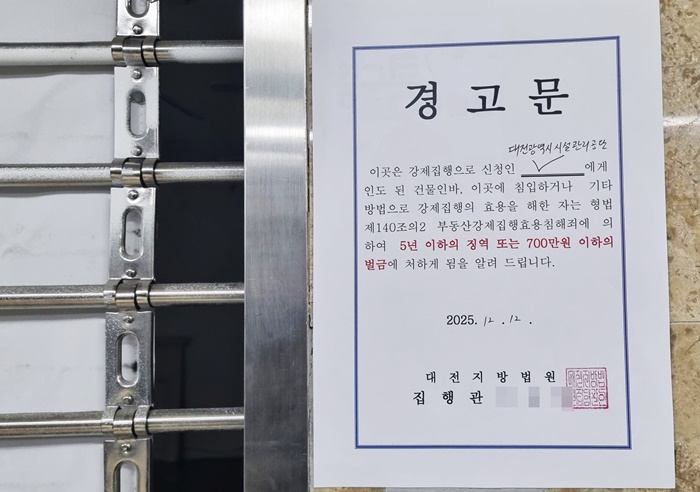 경고문
대전광역시시설관리공단
이곳은 강제집행으로 신청인 에게
인도 된 건물인바, 이곳에 침입하거나 기타
방법으로 강제집행의 효용을 해한 자는 형법
제140조의2 부동산강제집행효용침해죄에 의
하여 5년 이하의 징역 또는 700만원 이하의
벌금에 처하게 됨을 알려 드립니다.
2025. 12. 12.
대전지방법원
집행관